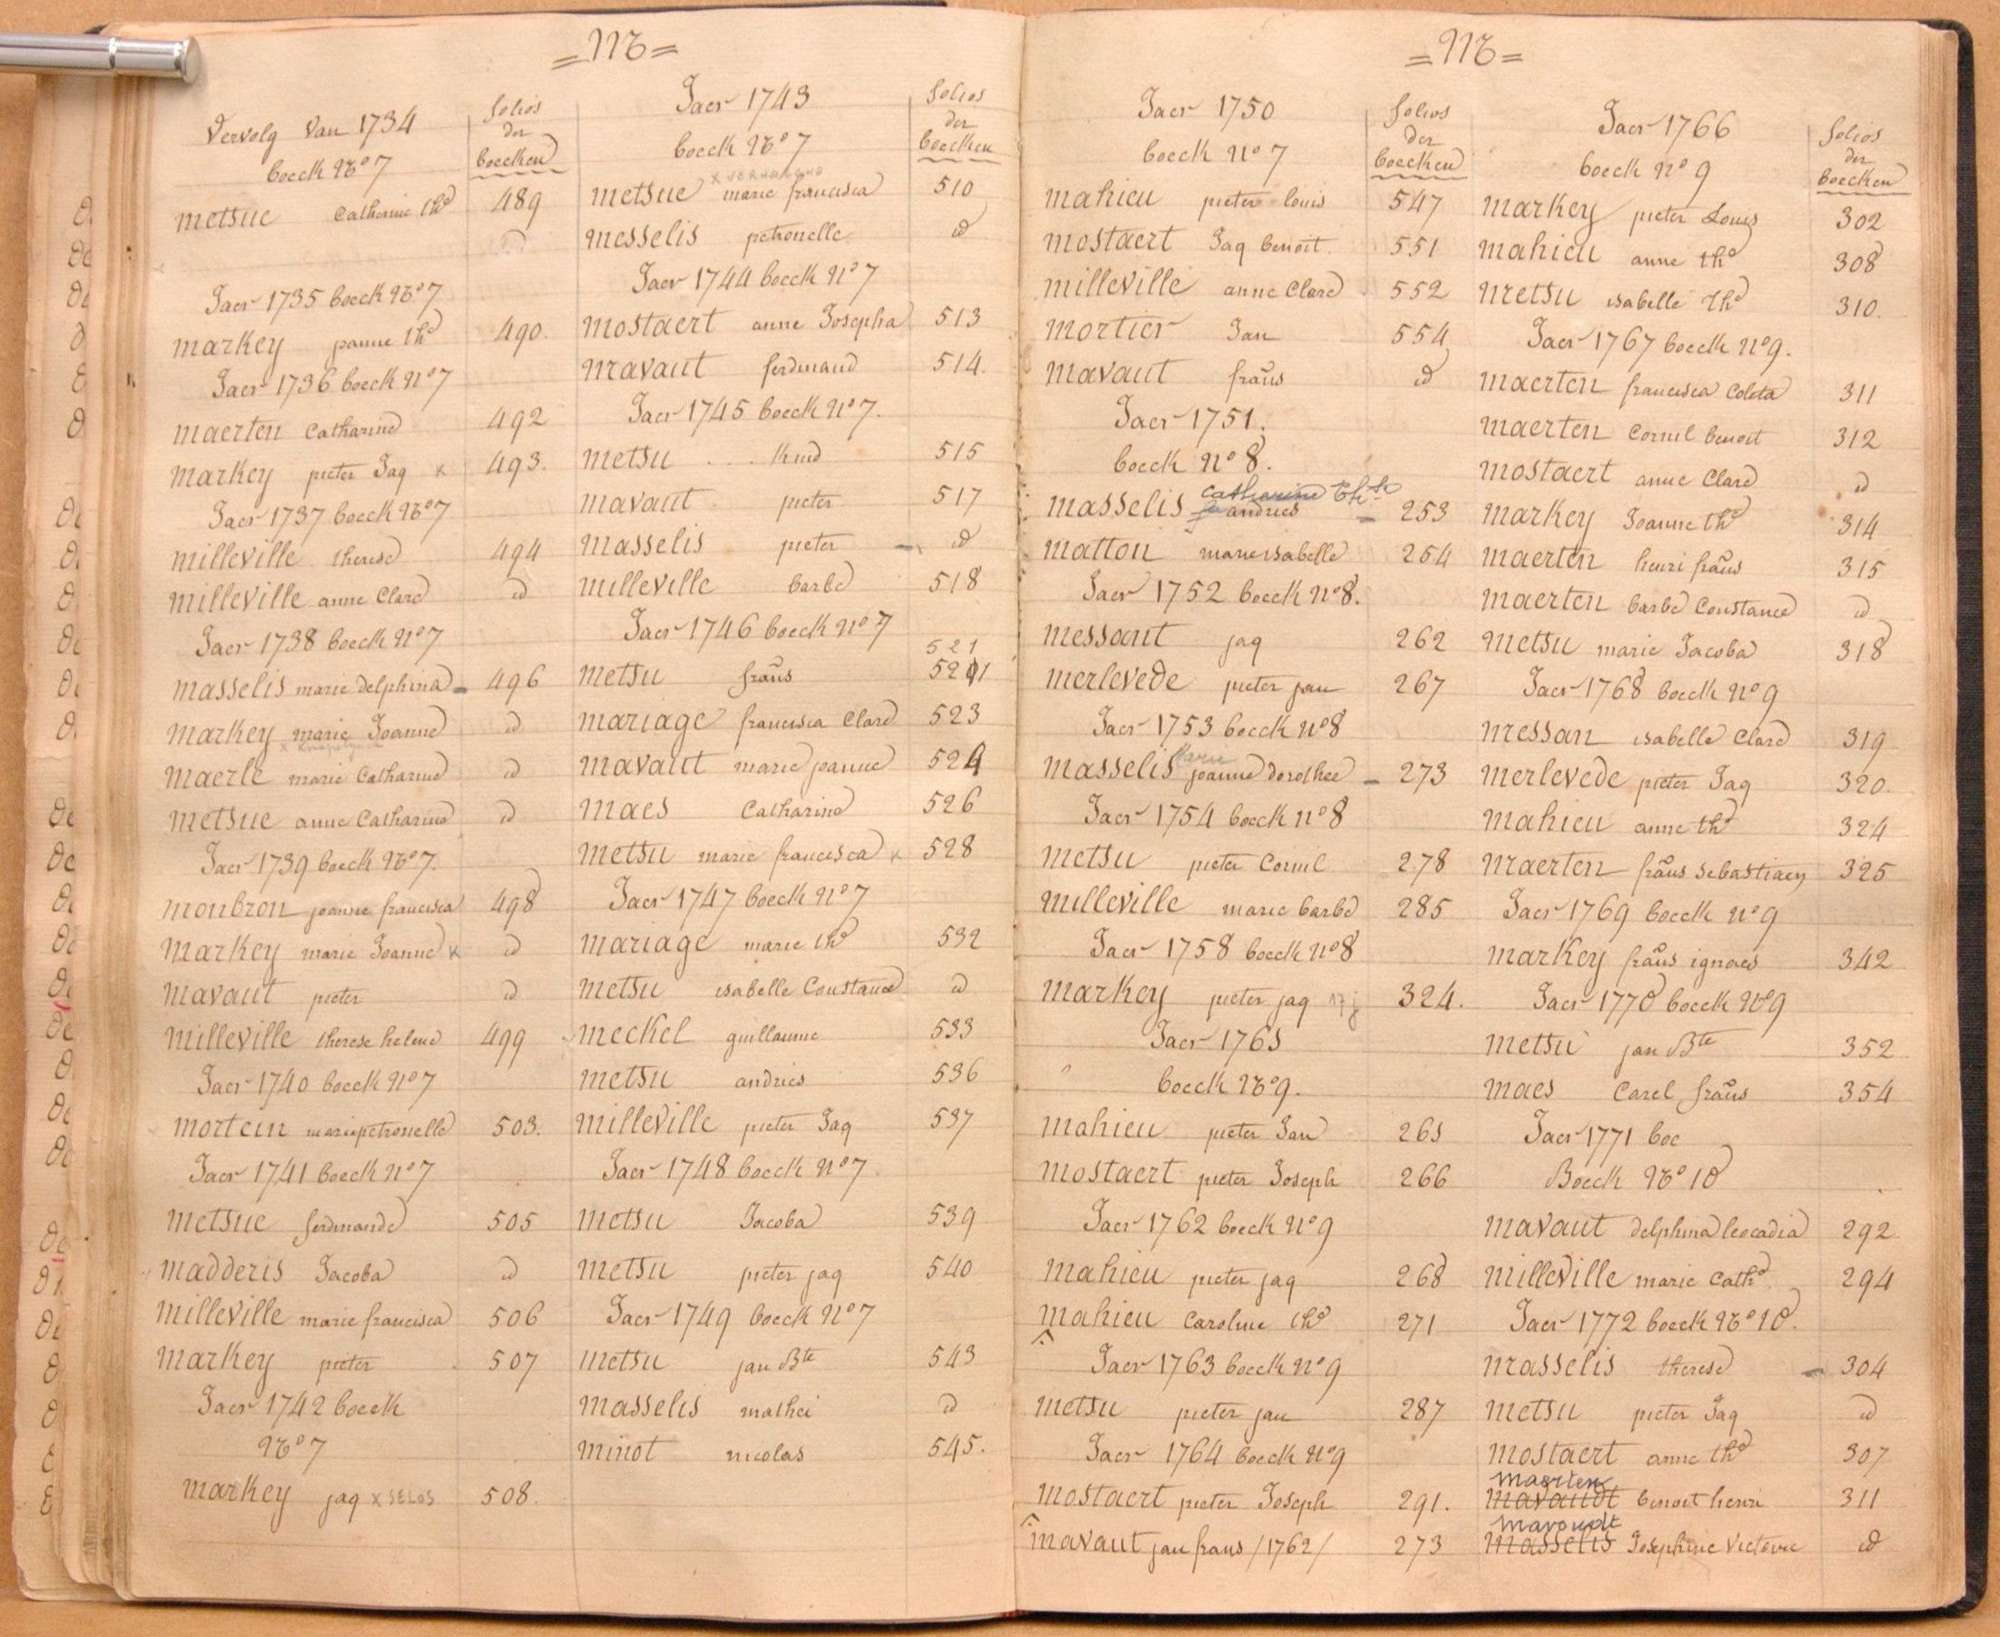 = M =
Vervolg van 1734
boeck No 7
folios
der
boecken
metsue Catherine thd 489
id
Jaer 1735 boeck No 7
markey joanne thd 490.
Jaer 1736 boeck No 7
maerten Catharine 492
markey pieter Jaq x 493.
Jaer 1737 boeck No 7
milleville therese 494
milleville anne Clare id
Jaer 1738 boeck No 7
masselis marie delphina - 496
markey marie Joanne id
maerle marie Catharine id
metsue anne Catharine id
Jaer 1739 boeck No 7.
monbron joanne francisca 498
markey marie Joanne x id
mavaut pieter id
milleville therese helene 499
Jaer 1740 boeck No 7
mortein marie petronelle 503.
Jaer 1741 boeck No 7
metsue ferdinande 505
madderis Jacoba id
milleville marie francisca 506
markey pieter 507
Jaer 1742 boeck
No 7
markey jaq x SELOS 508.
Jaer 1743
boeck No 7
folios
der
boecken
metsue marie francisca 510
messelis petronelle id
Jaer 1744 boeck No 7
mostaert anne Josepha 513
mavaut ferdinand 514.
Jaer 1745 boeck No 7.
metsu . . . kind 515
mavaut pieter 517
masselis pieter - id
milleville barbe 518
Jaer 1746 boeck No 7
521
metsu frans 521
mariage francisca Clare 523
mavaut marie joanne 524
maes Catharine 526
metsu marie francisca x 528
Jaer 1747 boeck No 7
mariage marie thd 532
metsu isabelle Constance id
meckel guillaume 533
metsu andries 536
milleville pieter Jaq 537
Jaer 1748 boeck No 7.
metsu Jacoba 539
metsu pieter jaq 540
Jaer 1749 boeck No 7
metsu jan Bte 543
masselis mathei id
minot nicolas 545.
= M =
Jaer 1750
boeck No 7
folios
der
boecken
mahieu pieter louis 547
mostaert Jaq benoit 551
milleville anne Clare 552
mortier Jan 554
mavaut frans id
Jaer 1751.
boeck No 8.
catharine th.
masselis andries - 253
matton marie isabelle 254
Jaer 1752 boeck No 8.
messant jaq 262
merlevede pieter jan 267
Jaer 1753 boeck No 8
marie
masselis joanne dorothee - 273
Jaer 1754 boeck No 8
metsu pieter Cornil 278
milleville marie barbe 285
Jaer 1758 boeck No 8
markey pieter jaq 17 j 324.
Jaer 1761
boeck No 9.
mahieu pieter Jan 261
mostaert pieter Joseph 266
Jaer 1762 boeck No 9
mahieu pieter jaq 268
mahieu Caroline thd 271
Jaer 1763 boeck No 9
metsu pieter jan 287
Jaer 1764 boeck No 9
mostaert pieter Joseph 291.
mavaut jan frans /1762/ 273
Jaer 1766
boeck No 9
folios
der
boecken
markey pieter Louis 302
mahieu anne thd 308
metsu isabelle thd 310.
Jaer 1767 boeck No 9.
maerten francisca Coleta 311
maerten Cornil benoit 312
mostaert anne Clare id
markey Joanne thd 314
maerten henri frans 315
maerten barbe Constance id
metsu marie Jacoba 318
Jaer 1768 boeck No 9
messan isabelle Clare 319
merlevede pieter Jaq 320.
mahieu anne thd 324
maerten frans Sebastiaen 325
Jaer 1769 boeck No 9
markey frans ignaes 342
Jaer 1770 boeck No 9
metsu jan Bte 352
maes Carel frans 354
Jaer 1771 boe
Boeck No 10
mavaut delphina leocadia 292
milleville marie Cathd 294
Jaer 1772 boeck No 10.
masselis therese - 304
metsu pieter Jaq id
mostaert anne thd 307
maerten
mavaudt benoit henri 311
mavoudt
masselis Josephine Victoire id